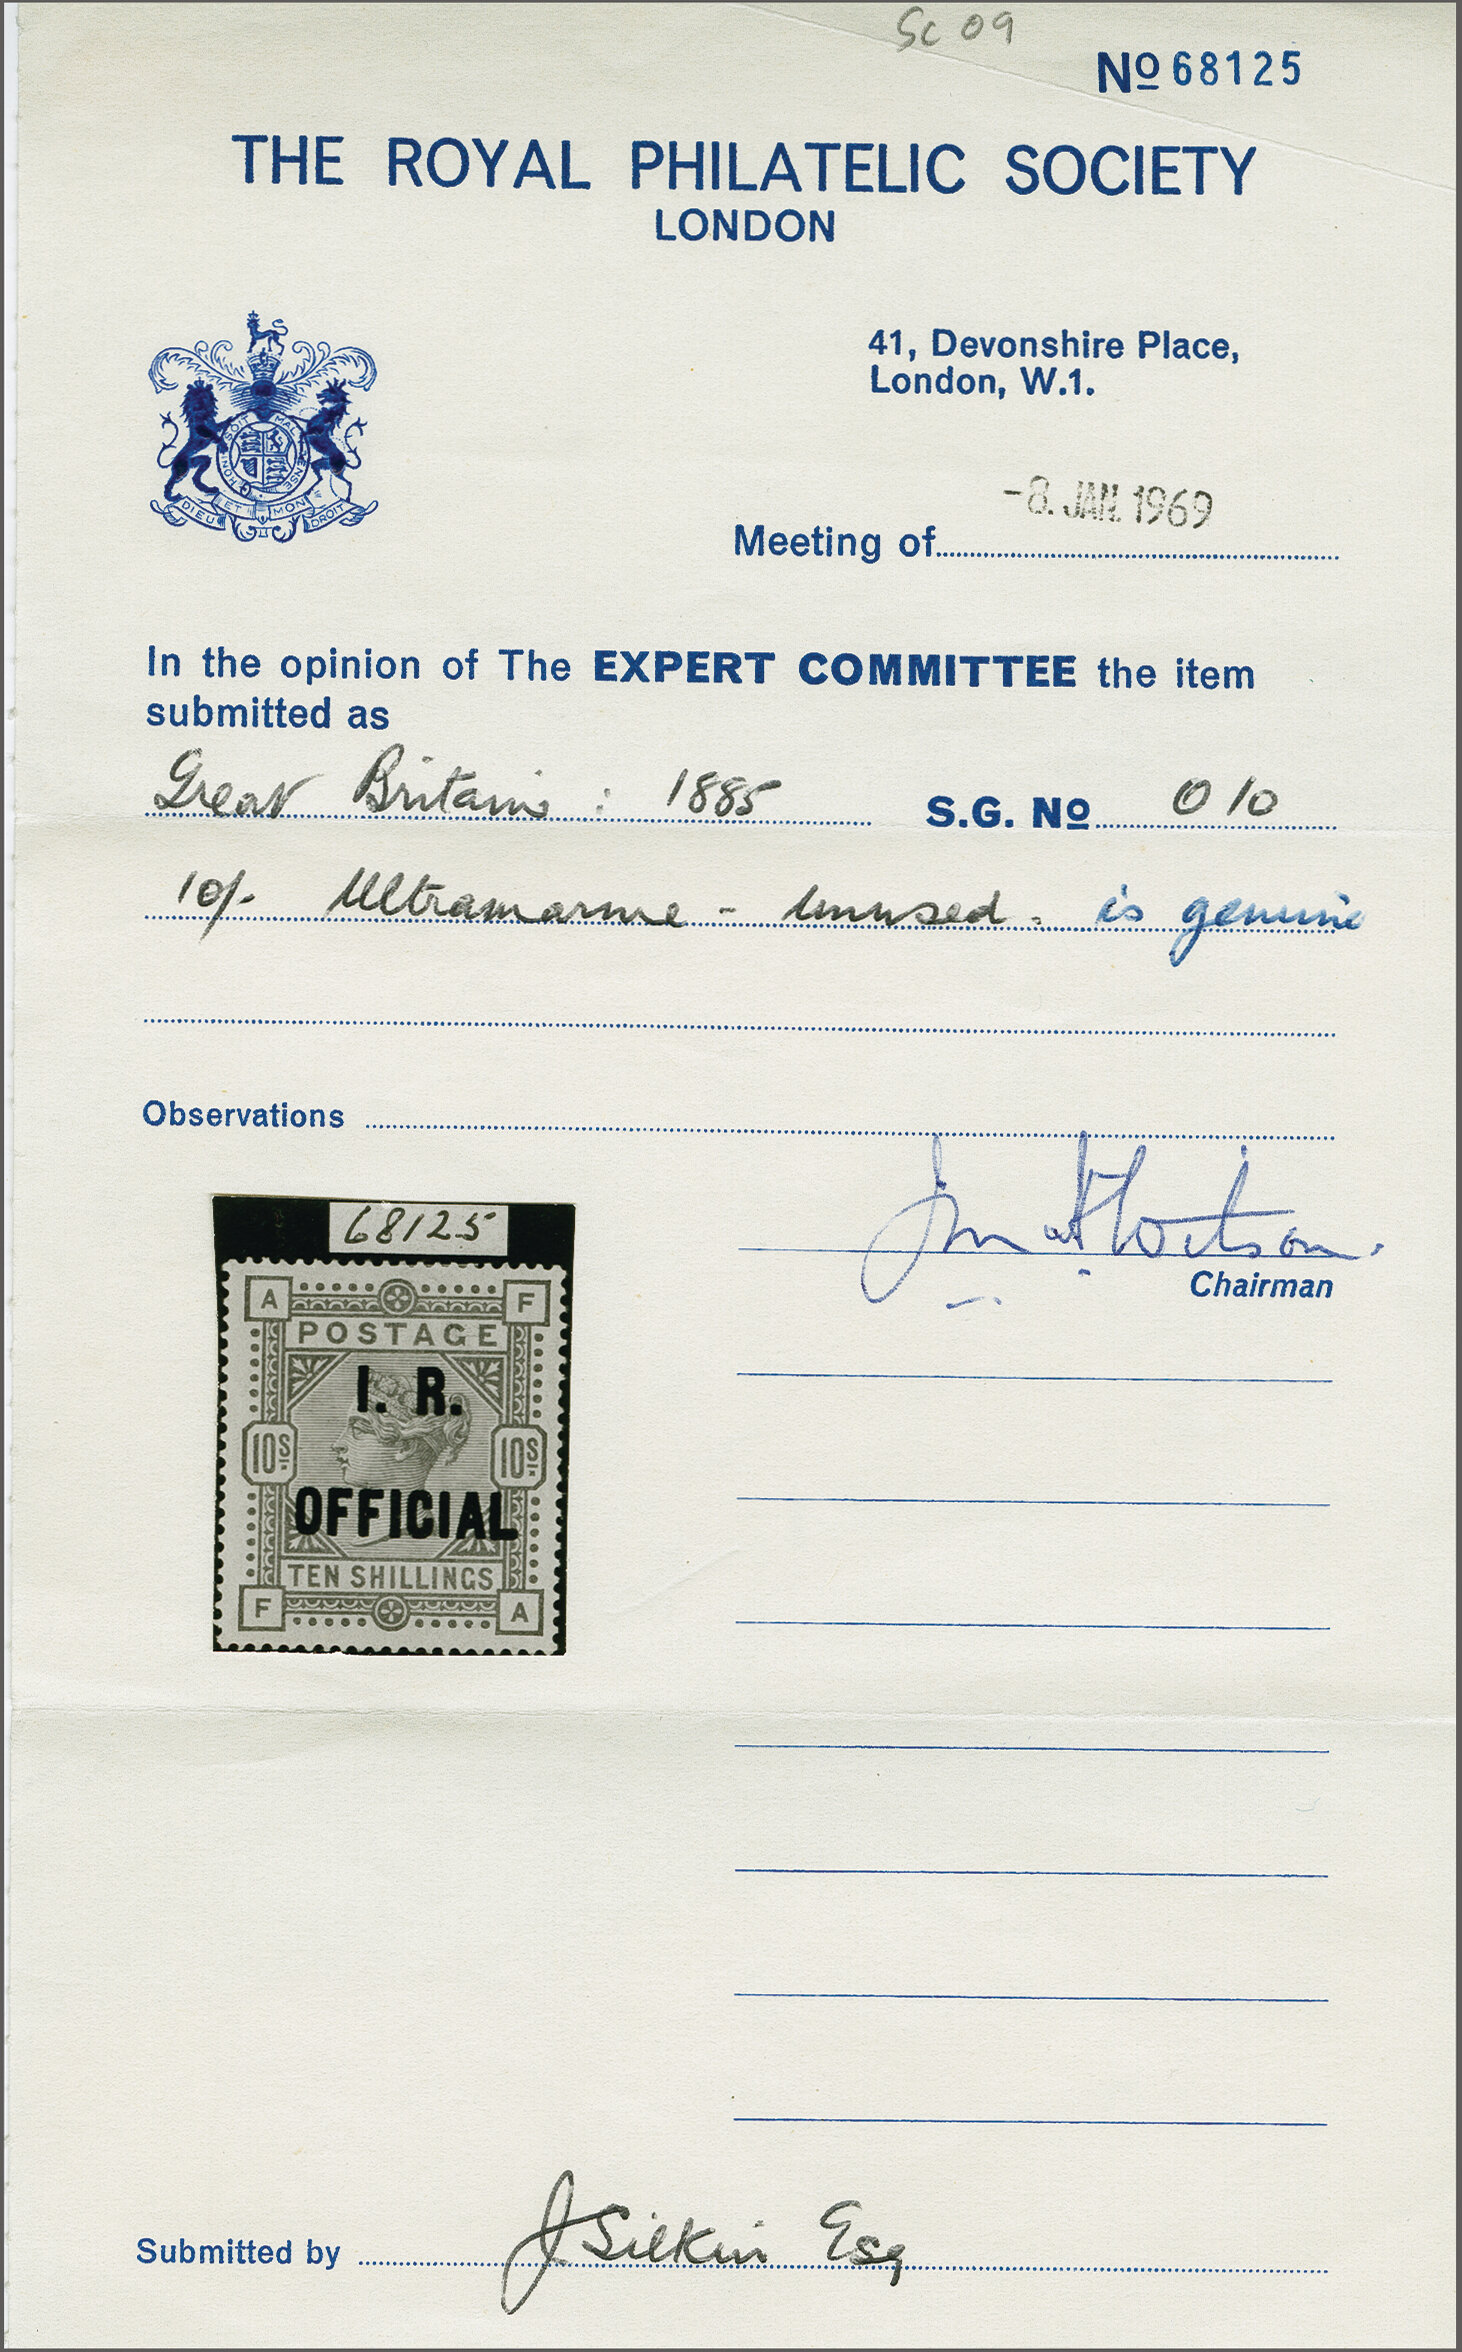 Sc 09
No 68125
THE ROYAL PHILATELIC SOCIETY
LONDON
41, Devonshire Place,
London, W.1.
HONI SOIT MAL ENSE
DIEU ET MON DROIT
-8. JAN. 1969
Meeting of
In the opinion of The EXPERT COMMITTEE the item
submitted as
Great Britain : 1885 S.G. No 010
10/- Ultramarine - Unused. is genuine
Observations
Chairman
68125
A F
POSTAGE
I. R.
10S 10S
OFFICIAL
TEN SHILLINGS
F A
Submitted by J Silkin Esq